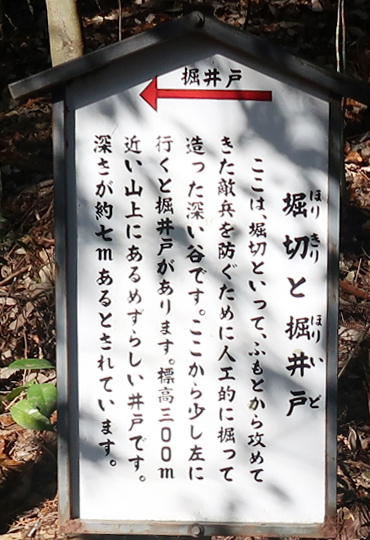 掘井戸
堀切と掘井戸
ほりきり ほりいど
ここは、堀切といって、ふもとから攻めて
きた敵兵を防ぐために人工的に掘って
造った深い谷です。ここから少し左に
行くと掘井戸があります。標高三〇〇m
近い山上にあるめずらしい井戸です。
深さが約七mあるとされています。